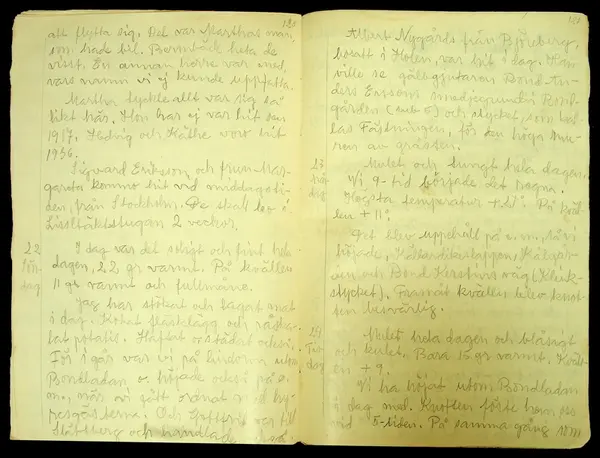 120
att flytta sig. Del var Marthas man,
som hade bil. Bernbäck heta de
visst. En annan herre var med,
vars namn vi ej kunde uppfatta.
Martha tyckte allt var sig så
likt här. Hon har ej var hit sen
1917. Hedvig och Käthe voro hit
1936.
Sigvard Eriksson och frun Mar-
gareta kommo hit vid middagsti-
den, från Stockholm. De skall bo i
Lissltäktstugan 2 veckor.
22 I dag var det soligt och fint hela
Sön- dagen, 22 gr varmt. På kvällen
dag 11 gr varmt och fullmåne.
Jag har stökat och lagat mat
i dag. Kokat fläsklägg och
lat potatis. Häftat o städat också.
För i går var vi på lindorna utom
Bondladan o. höjade också på e.
m., när vi fått ordnat med
gästerna. Och Gottfrid var till
Slättberg och handlade
121
Albert Nygårds från Björberg,
bosatt i Holen, var hit i dag. Han
ville se gälbgjutaren Bond An-
ders Erssons smedjeepunkt i Bond-
gården (sub 5) och stycket, som kal-
las Fästningen, för den höga mu-
ren av gråsten.
23 Mulet och tungt hela dagen.
Mån- Vi 9-tid började det regna.
dag Högsta temperatur + 21°. På kväl-
len + 11°.
Det blev uppehåll på e. m., så vi
höjade, Källandikslappen, Kålgår-
den och Bond Kerstins väg
stycket). Framåt kvällen blev knot-
ten besvärlig.
24 Mulet hela dagen och blåsigt
Tis- och kulet. Bara 15 gr varmt. Kväl-
dag len + 9.
Vi ha höjat utom Bondladan
i dag med. Knotten förde hem oss
vid 5-tiden. På samma gång som